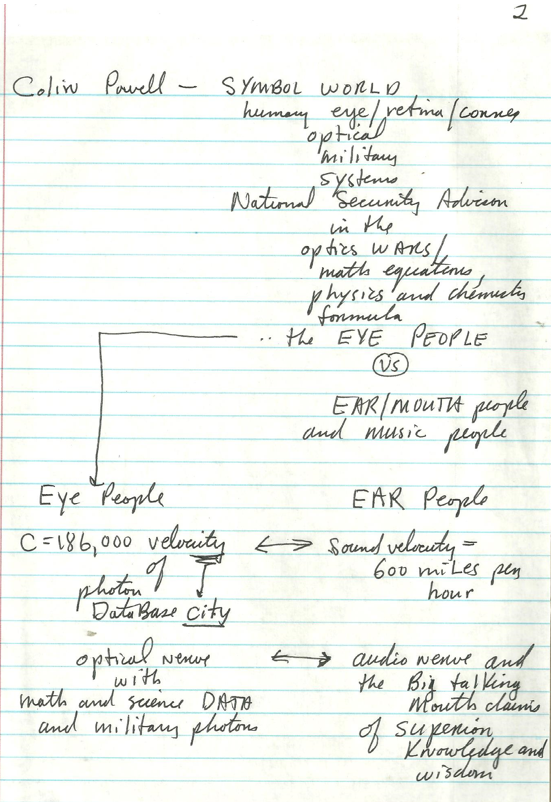 2
Colin Powell — SYMBOL WORLD
human eye/retina/cornea
optical
military
systems
National Security Advisor
in the
optics WARS/
math equations,
physics and chemistry
formula
.. the EYE PEOPLE
VS
EAR/MOUTH people
and music people
Eye People EAR People
C=186,000 velocity ↔ Sound velocity =
of 600 miles per
photon hour
DataBase city
optical nerve ↔ audio nerve and
with the Big talking
math and science DATA Mouth claims
and military photons of superior
Knowledge and
wisdom